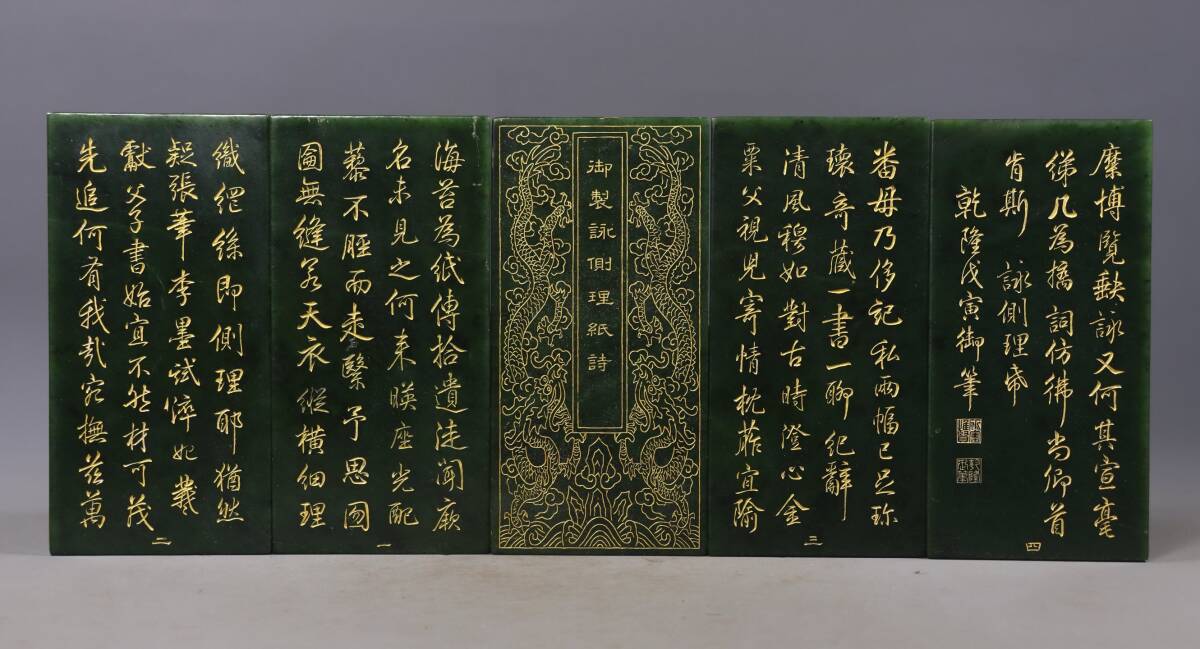 御製詠側理紙詩
海苔為紙傳拾遺徒聞厥
名未見之何来暎座光配
藜不脛而走繄予思囫
圇無縫若天衣縱橫細理
織網絲即側理耶猶然
疑張筆李墨試淬妃羲
獻父子書始宜不然材可茂
先追何有我哉宛撫茲萬
一
二
番毋乃侈記私兩幅已足珍
瓌奇藏一書一聊紀辭
清風穆如對古時澄心金
粟父視兒寄情枕葄宜隃
三
麋博覽歟詠又何其宣毫
綈几為摛詞仿彿尚卿首
肯斯 詠側理帋
乾隆戊寅御筆
四